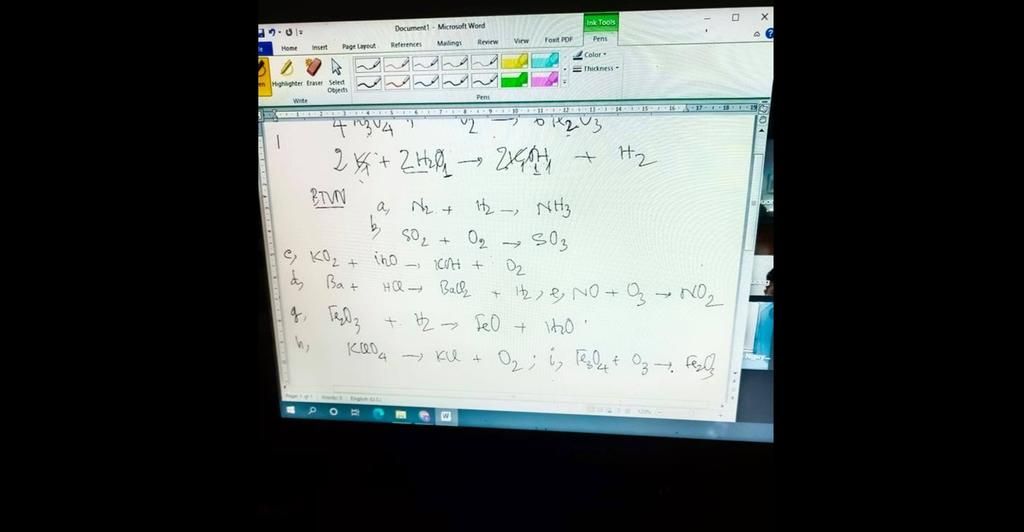 Document1 - Microsoft Word
Ink Tools
Home Insert Page Layout References Mailings Review View Foxit PDF Pens
Highlighter Eraser Select Objects
Color
Thickness
Write
Pens
2K + 2H2O → 2KOH + H2
BTVN
a, N2 + H2 → NH3
b, SO2 + O2 → SO3
c, KO2 + H2O → KOH + O2
d, Ba + HCl → BaCl2 + H2, e, NO + O3 → NO2
g, Fe2O3 + H2 → FeO + H2O
h, KClO4 → KCl + O2; i, Fe3O4 + O3 → Fe2O3
Page: 1 of 1 Words: 0 English (U.S.)
120%